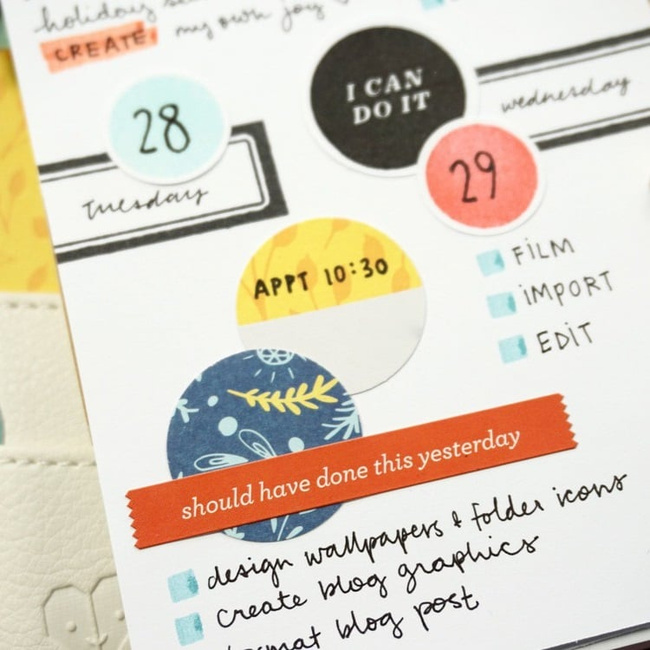 holiday
CREATE. my own joy
I CAN
DO IT
28
Tuesday
wednesday
29
APPT 10:30
FILM
iMPORT
EDiT
should have done this yesterday
design wallpapers & folder icons
create blog graphics
blog post